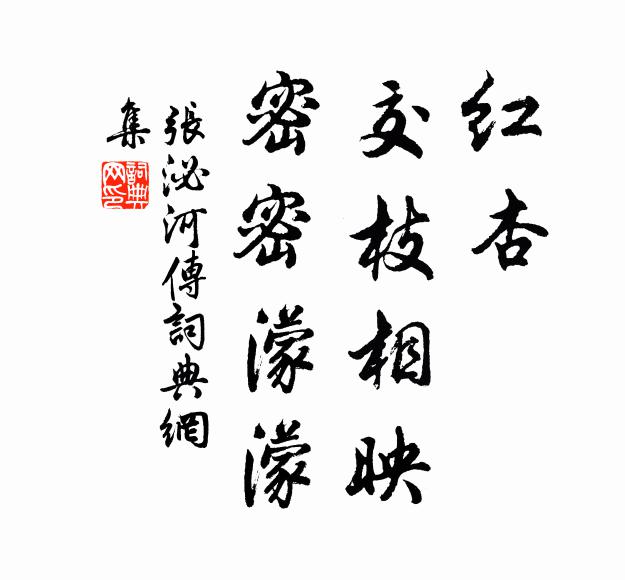 红杏
交枝相映
密密濛濛
張泌河傳詞典網
集
詞典
网印